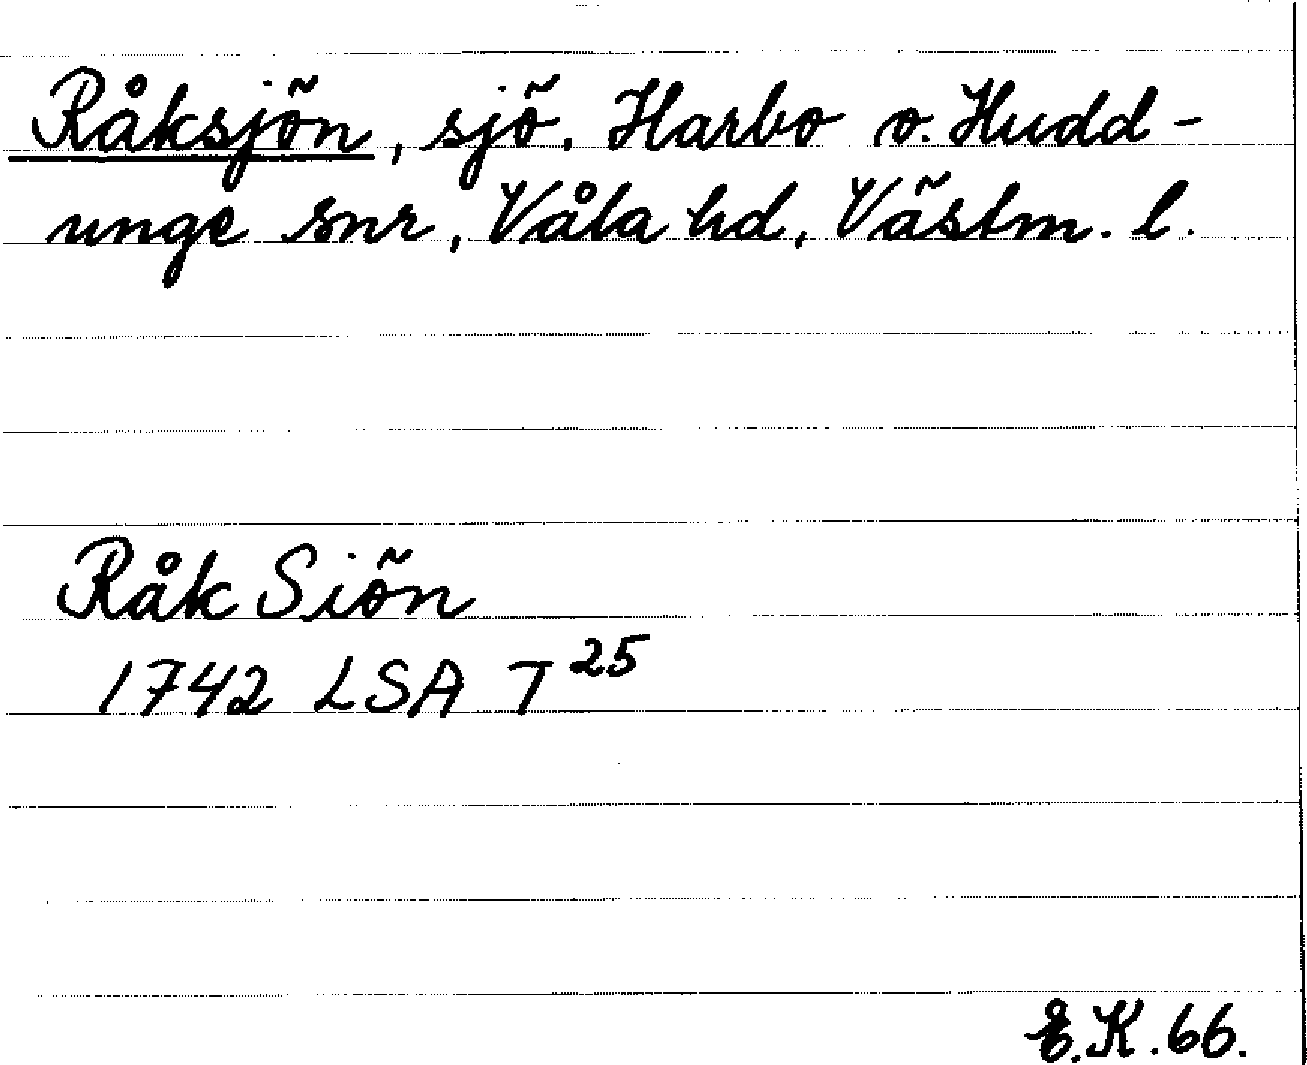 Råksjön, sjö. Harbo o. Hudd-
unge snr, Våla hd, Västm. l.
Råk Siön
1742 LSA T²⁵
E.K.66.